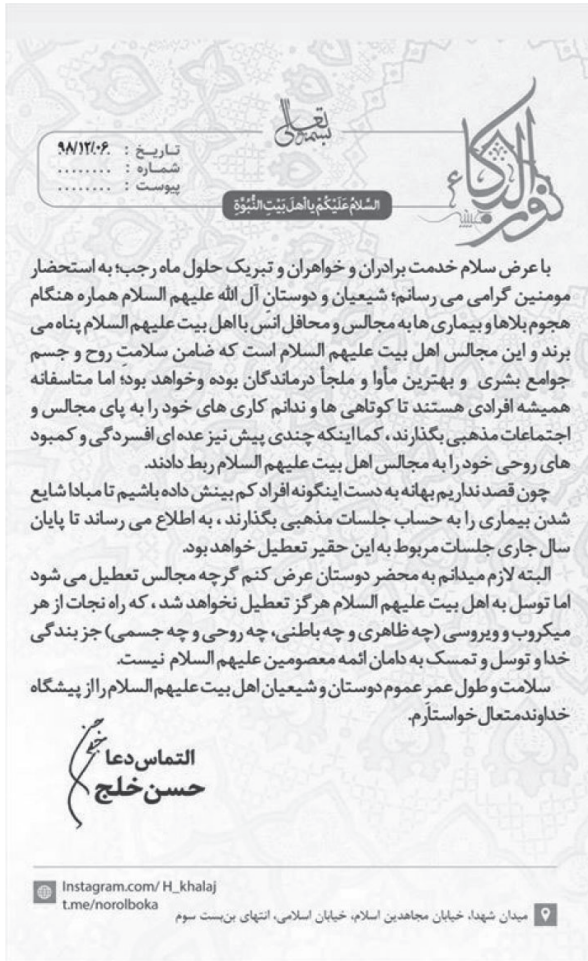 بسمه تعالی
نورالبکاء
تاریخ : ۹۸/۱۲/۰۶
شماره : ........
پیوست : ........
السَّلامُ عَلَیْکُمْ یا اَهلَ بَیْتِ النُّبُوَّةِ
با عرض سلام خدمت برادران و خواهران و تبریک حلول ماه رجب؛ به استحضار
مومنین گرامی می رسانم؛ شیعیان و دوستانِ آل الله علیهم السلام هماره هنگام
هجوم بلاها و بیماری ها به مجالس و محافل انس با اهل بیت علیهم السلام پناه می
برند و این مجالس اهل بیت علیهم السلام است که ضامن سلامتِ روح و جسم
جوامع بشری و بهترین مأوا و ملجأ درماندگان بوده وخواهد بود؛ اما متاسفانه
همیشه افرادی هستند تا کوتاهی ها و ندانم کاری های خود را به پای مجالس و
اجتماعات مذهبی بگذارند ، کما اینکه چندی پیش نیز عده ای افسردگی و کمبود
های روحی خود را به مجالس اهل بیت علیهم السلام ربط دادند.
چون قصد نداریم بهانه به دست اینگونه افراد کم بینش داده باشیم تا مبادا شایع
شدن بیماری را به حساب جلسات مذهبی بگذارند ، به اطلاع می رساند تا پایان
سال جاری جلسات مربوط به این حقیر تعطیل خواهد بود.
البته لازم میدانم به محضر دوستان عرض کنم گرچه مجالس تعطیل می شود
اما توسل به اهل بیت علیهم السلام هرگز تعطیل نخواهد شد ، که راه نجات از هر
میکروب و ویروسی (چه ظاهری و چه باطنی، چه روحی و چه جسمی) جز بندگی
خدا و توسل و تمسک به دامان ائمه معصومین علیهم السلام نیست.
سلامت و طول عمر عموم دوستان و شیعیان اهل بیت علیهم السلام را از پیشگاه
خداوندمتعال خواستارم.
التماس دعا
حسن خلج
Instagram.com/ H_khalaj
t.me/norolboka
میدان شهدا، خیابان مجاهدین اسلام، خیابان اسلامی، انتهای بن‌بست سوم